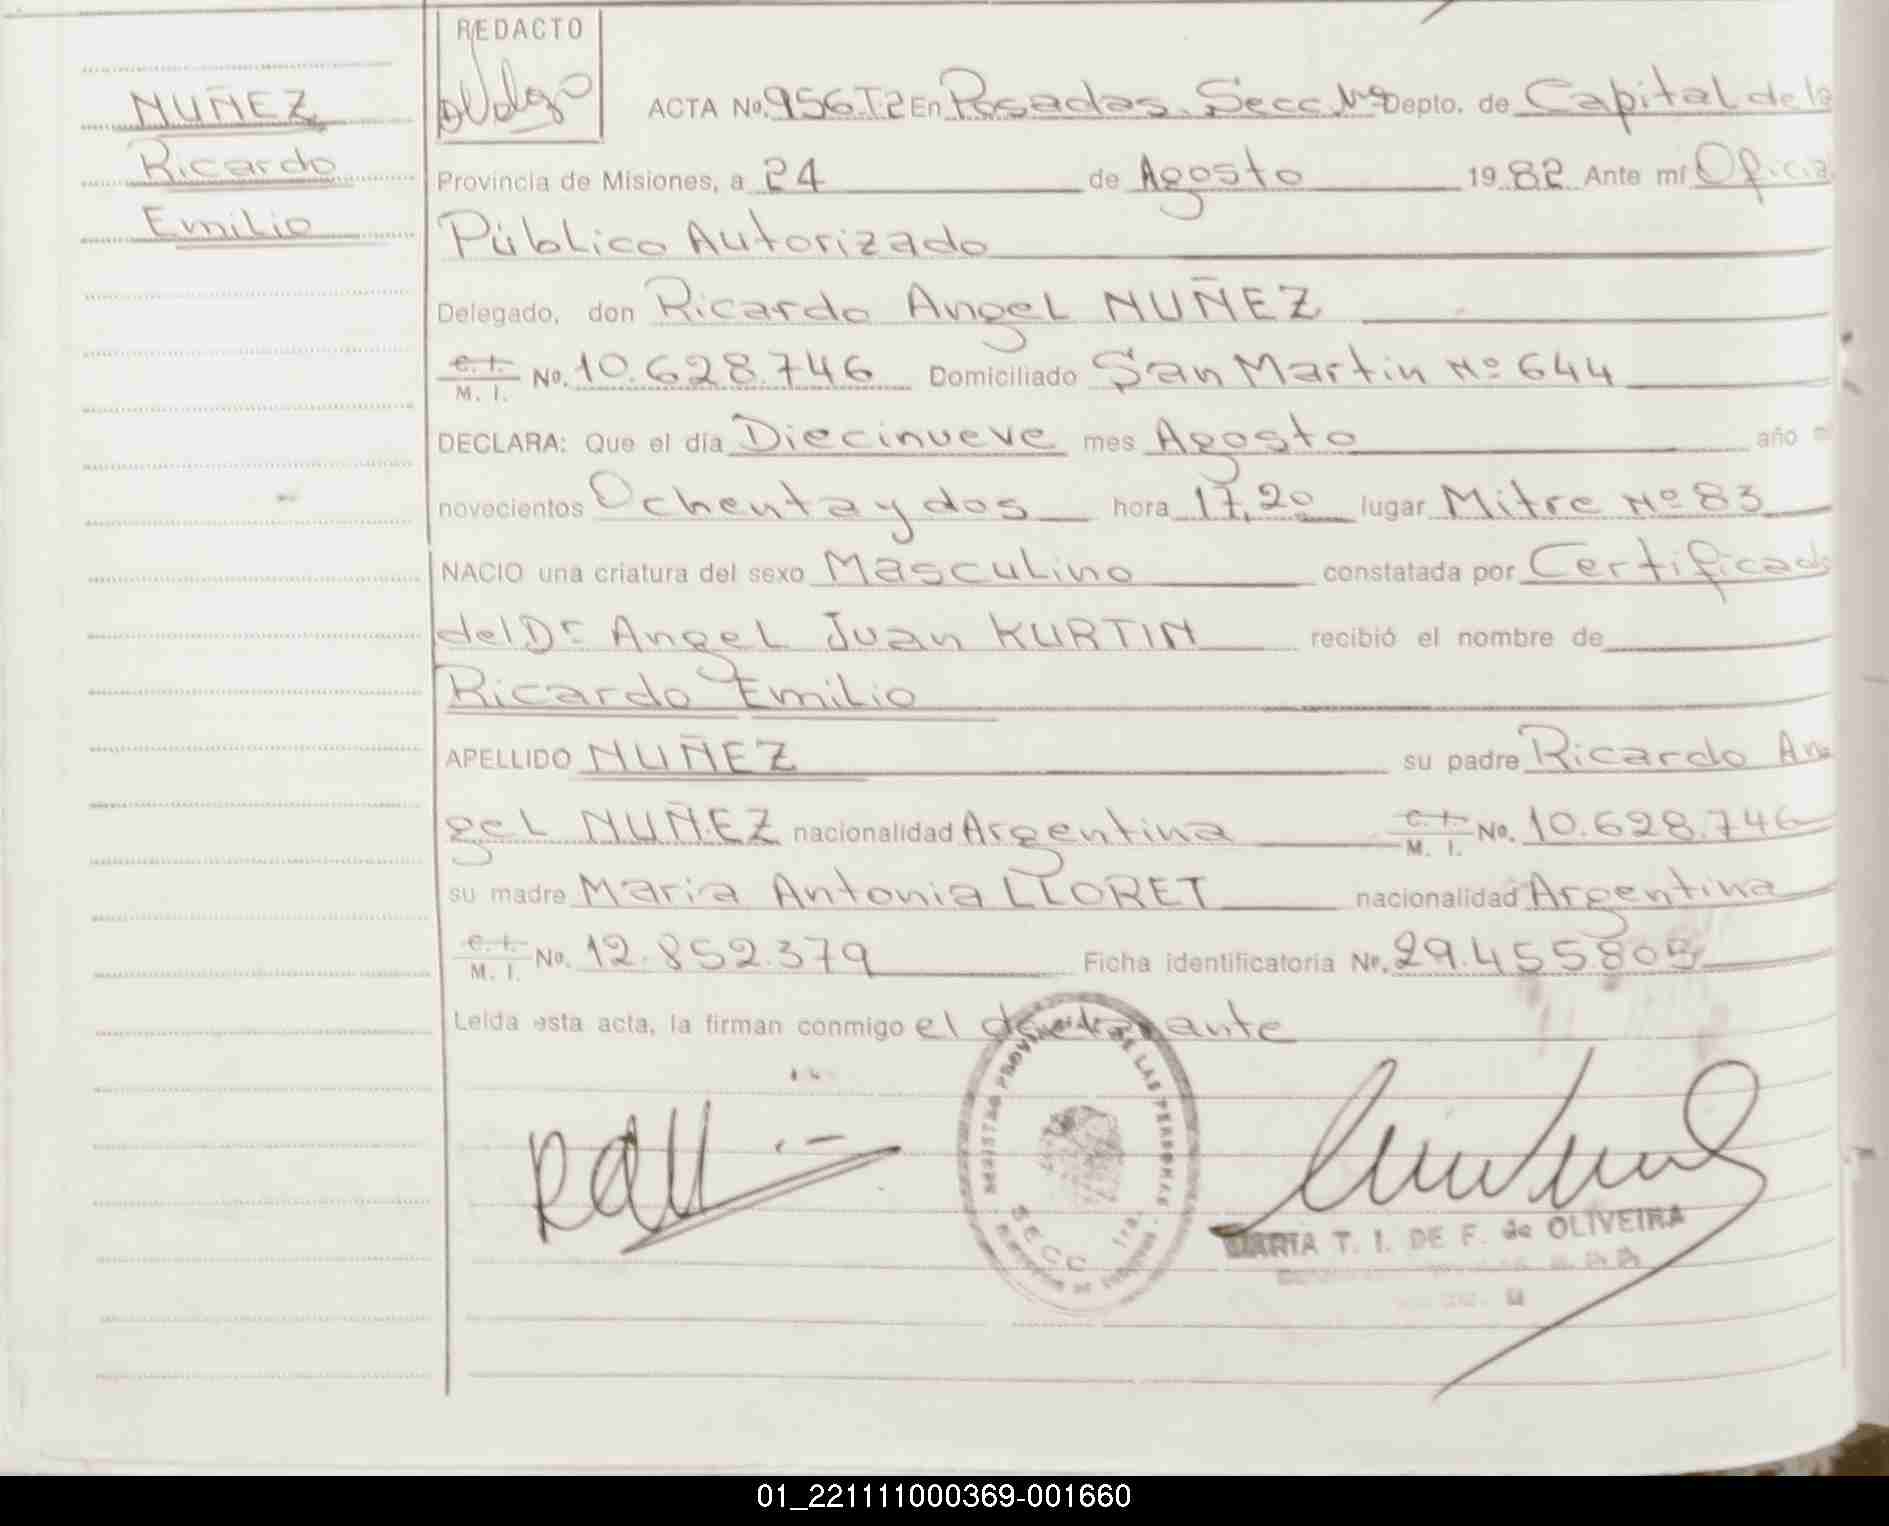 REDACTO
NUÑEZ
Ricardo
Emilio
ACTA No. 956.T.2 En Posadas. Secc. Depto. de Capital de la
Provincia de Misiones, a 24 de Agosto 1982 Ante mí Oficial
Público Autorizado
Delegado, don Ricardo Angel NUÑEZ
C. I. / M. I. No. 10.628.746 Domiciliado San Martin Nº 644
DECLARA: Que el día Diecinueve mes Agosto año
novecientos Ochenta y dos hora 17,20 lugar Mitre Nº 83
NACIO una criatura del sexo Masculino constatada por Certificado
del Dr Angel Juan KURTIN recibió el nombre de
Ricardo Emilio
APELLIDO NUÑEZ su padre Ricardo An
gel NUÑEZ nacionalidad Argentina C. I. / M. I. No. 10.628.746
su madre Maria Antonia LLORET nacionalidad Argentina
C. I. / M. I. No. 12.852.379 Ficha identificatoria No. 29.455.805
Leída esta acta, la firman conmigo el ante
DE LAS PERSONAS
SECC 1ra.
MARIA T. I. DE F. de OLIVEIRA
01_221111000369-001660